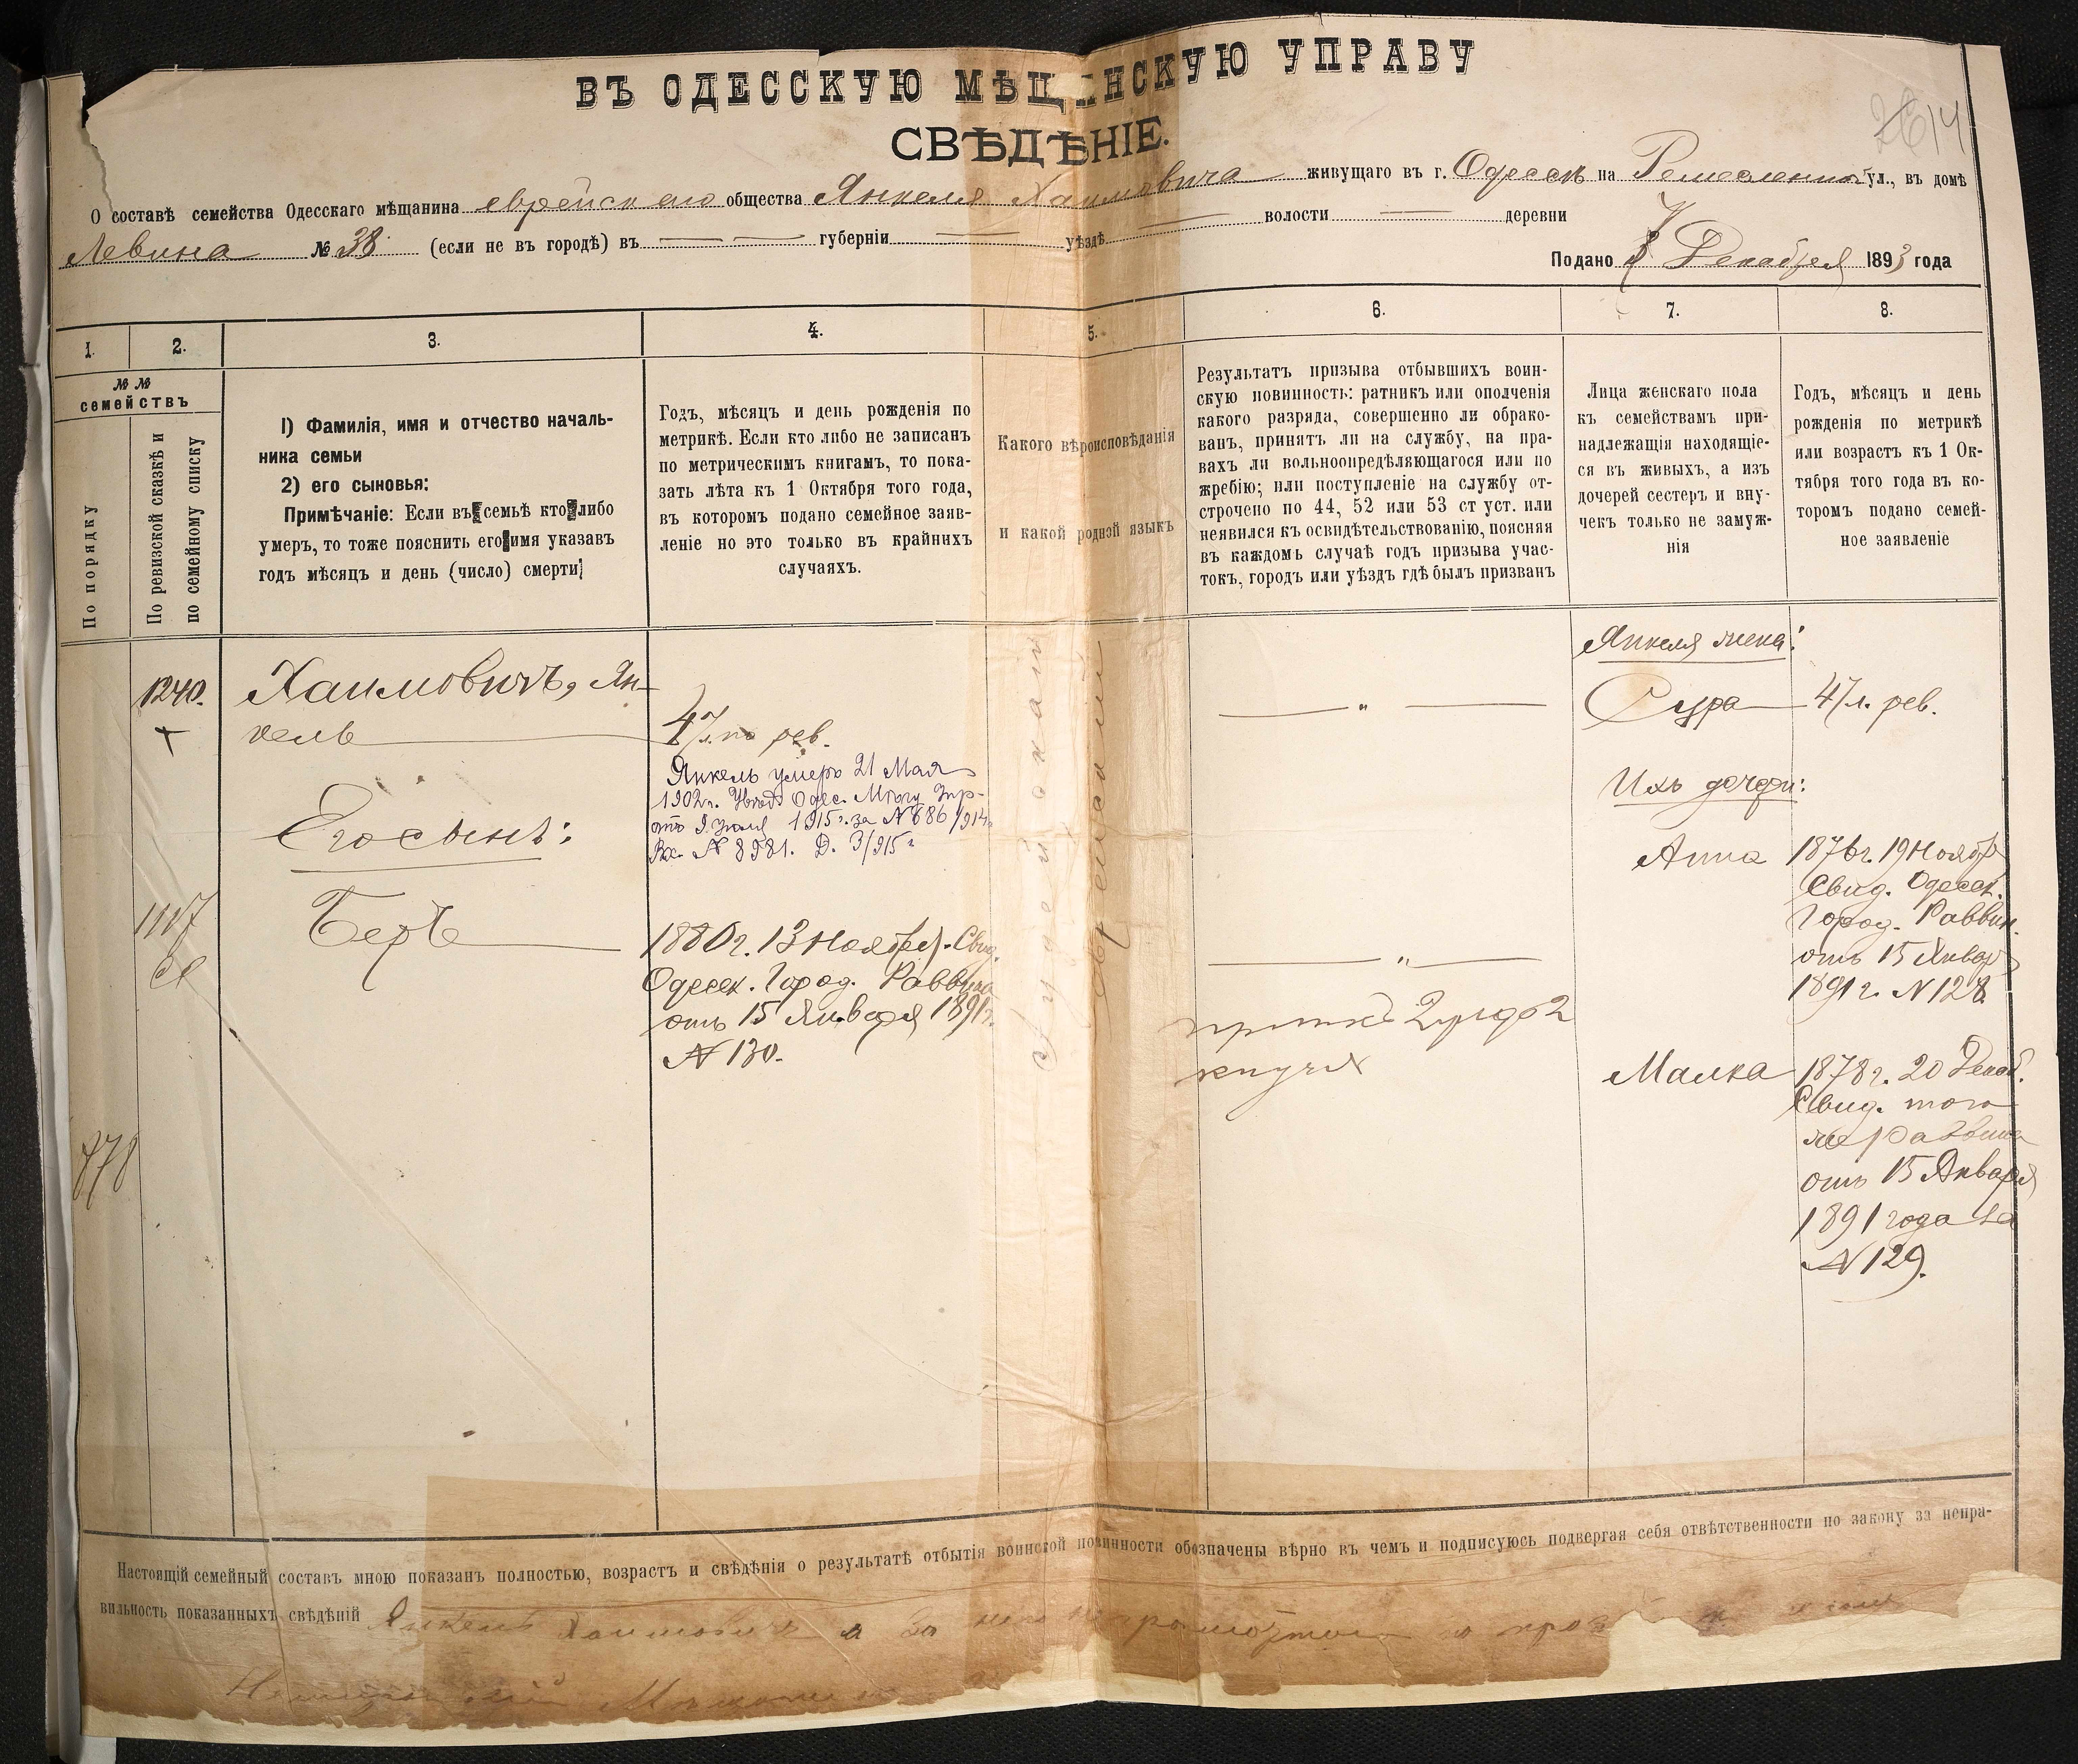 ВЪ ОДЕССКУЮ МѢЩАНСКУЮ УПРАВУ
СВѢДѢНІЕ.
О составѣ семейства Одесскаго мѣщанина еврейскаго общества Янкеля Хаимовича живущаго въ г. Одессѣ на Ремесленной ул., въ домѣ
Левина № 38 (если не въ городѣ) въ губерніи уѣздѣ волости деревни
Подано Декабря 1893 года
1. 2. 3. 4. 5. 6. 7. 8.
№ №
семействъ
По порядку
По ревизской сказкѣ и
по семейному списку
1) Фамилія, имя и отчество началь-
ника семьи
2) его сыновья:
Примѣчаніе: Если въ семьѣ кто либо
умеръ, то тоже пояснить его имя указавъ
годъ мѣсяцъ и день (число) смерти
Годъ, мѣсяцъ и день рожденія по
метрикѣ. Если кто либо не записанъ
по метрическимъ книгамъ, то пока-
зать лѣта къ 1 Октября того года,
въ которомъ подано семейное заяв-
леніе но это только въ крайнихъ
случаяхъ.
Какого вѣроисповѣданія
и какой родной языкъ
Результатъ призыва отбывшихъ воин-
скую повинность: ратникъ или ополченія
какого разряда, совершенно ли обрако-
ванъ, принятъ ли на службу, на пра-
вахъ ли вольноопредѣляющагося или по
жребію; или поступленіе на службу от-
строчено по 44, 52 или 53 ст уст. или
неявился къ освидѣтельствованію, поясняя
въ каждомъ случаѣ годъ призыва учас-
токъ, городъ или уѣздъ гдѣ былъ призванъ
Лица женскаго пола
къ семействамъ при-
надлежащія находящіе-
ся въ живыхъ, а изъ
дочерей сестеръ и вну-
чекъ только не замуж-
нія
Годъ, мѣсяцъ и день
рожденія по метрикѣ
или возрастъ къ 1 Ок-
тября того года въ ко-
торомъ подано семей-
ное заявленіе
1240.
Хаимовичъ, Ян-
кель
47 л. по рев.
Янкель умеръ 21 Мая
1902 г. Одес.
1915 г. за № 686/914
Вх. № 8981. Д. 3/915 г
Его сынъ:
1117
Беръ
1880 г. 13 Ноября. Свид.
Одесск. Город. Раввина
отъ 15 Января 1891 г.
№ 130.
878
Іудейскаго
еврейскій
Янкеля жена:
Сура 47 л. рев.
Ихъ дочери:
Анна 1876 г. 19 Ноябр
Свид. Одесск.
Город. Раввин.
отъ 15 Январ
1891 г. № 128
Малка 1878 г. 20 Декаб.
Свид. того
же Раввина
отъ 15 Января
1891 года за
№ 129.
Настоящій семейный составъ мною показанъ полностью, возрастъ и свѣдѣнія о результатѣ отбытія воинской повинности обозначены вѣрно въ чемъ и подписуюсь подвергая себя отвѣтственности по закону за непра-
вильность показанныхъ свѣдѣній Янкель Хаимовичъ а за него неграмотнаго